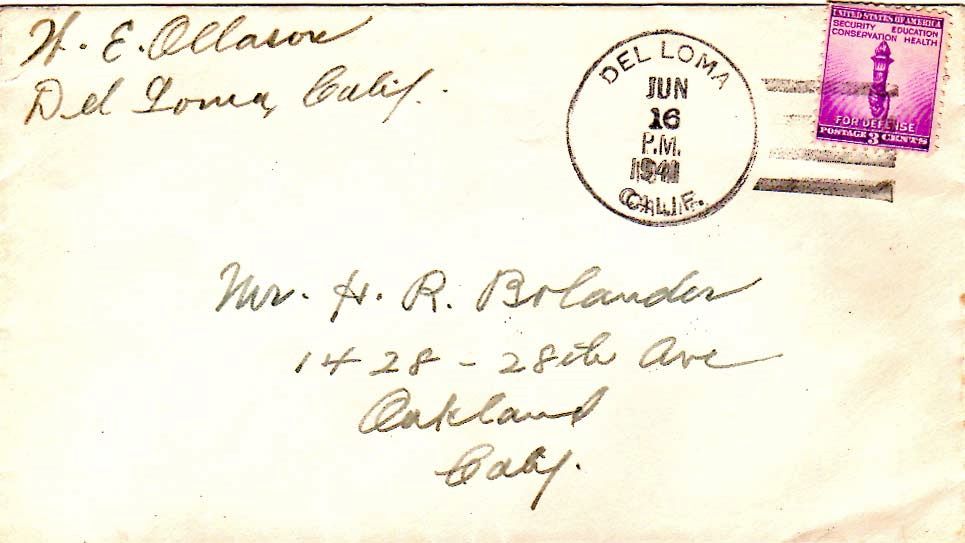 W. E. Ollason
Del Loma, Calif.
DEL LOMA
JUN
16
P.M.
1941
CALIF.
UNITED STATES OF AMERICA
SECURITY EDUCATION
CONSERVATION HEALTH
FOR DEFENSE
POSTAGE 3 CENTS
Mr. H. R. Bolander
1428 - 28th Ave
Oakland
Calif.